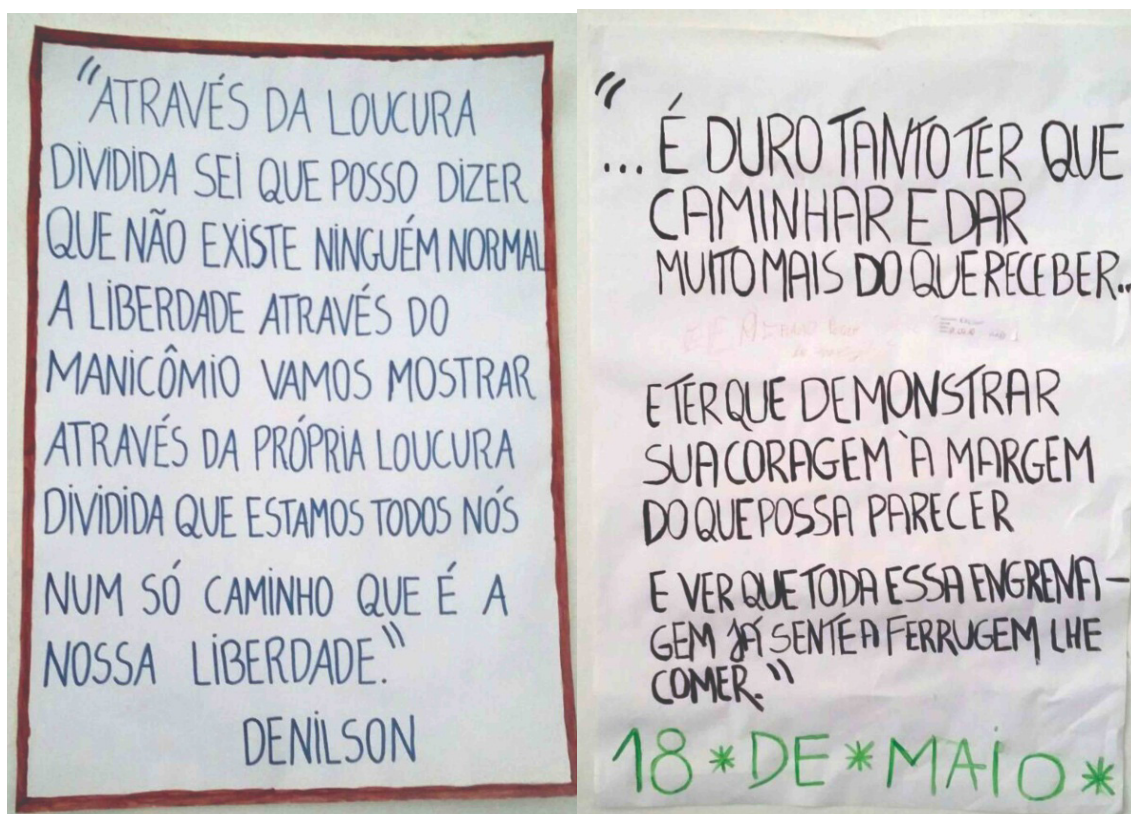 "ATRAVÉS DA LOUCURA
DIVIDIDA SEI QUE POSSO DIZER
QUE NÃO EXISTE NINGUÉM NORMAL
A LIBERDADE ATRAVÉS DO
MANICÔMIO VAMOS MOSTRAR
ATRAVÉS DA PRÓPRIA LOUCURA
DIVIDIDA QUE ESTAMOS TODOS NÓS
NUM SÓ CAMINHO QUE É A
NOSSA LIBERDADE."
DENILSON
"
... É DURO TANTO TER QUE
CAMINHAR E DAR
MUITO MAIS DO QUE RECEBER..
E TER QUE DEMONSTRAR
SUA CORAGEM À MARGEM
DO QUE POSSA PARECER
E VER QUE TODA ESSA ENGRENA-
GEM JÁ SENTE A FERRUGEM LHE
COMER."
18 * DE * MAIO *